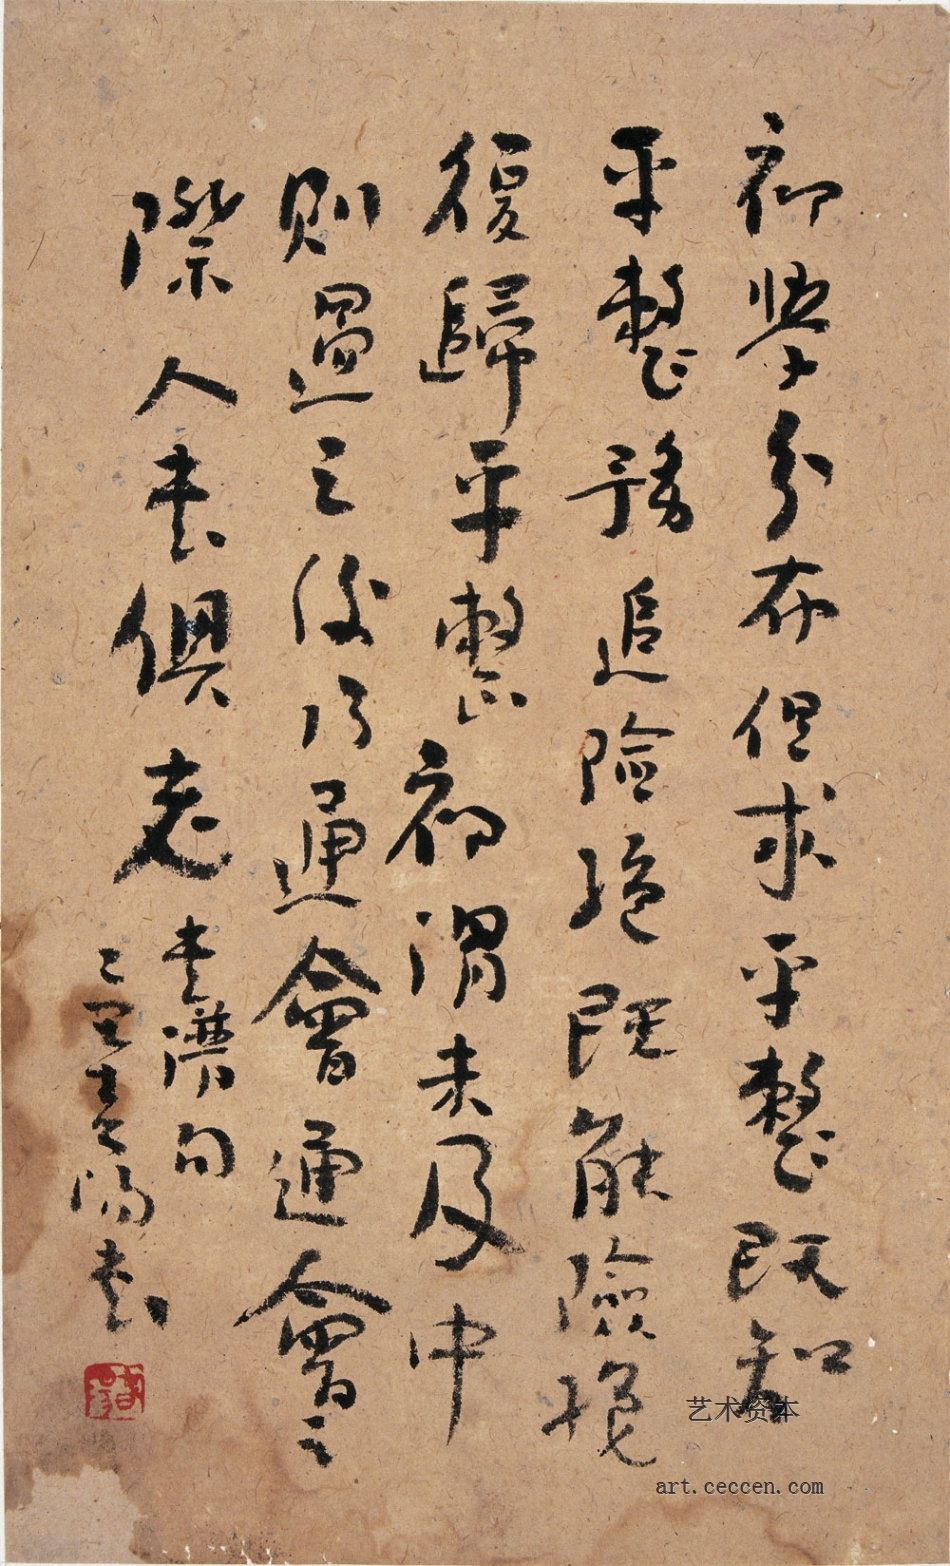 初學分布但求平整既知
平整務追險絕既能險絕
復歸平整初謂未及中
則過之後乃通會通會之
際人書俱老書譜句
陽書
艺术资本
art.ceccen.com